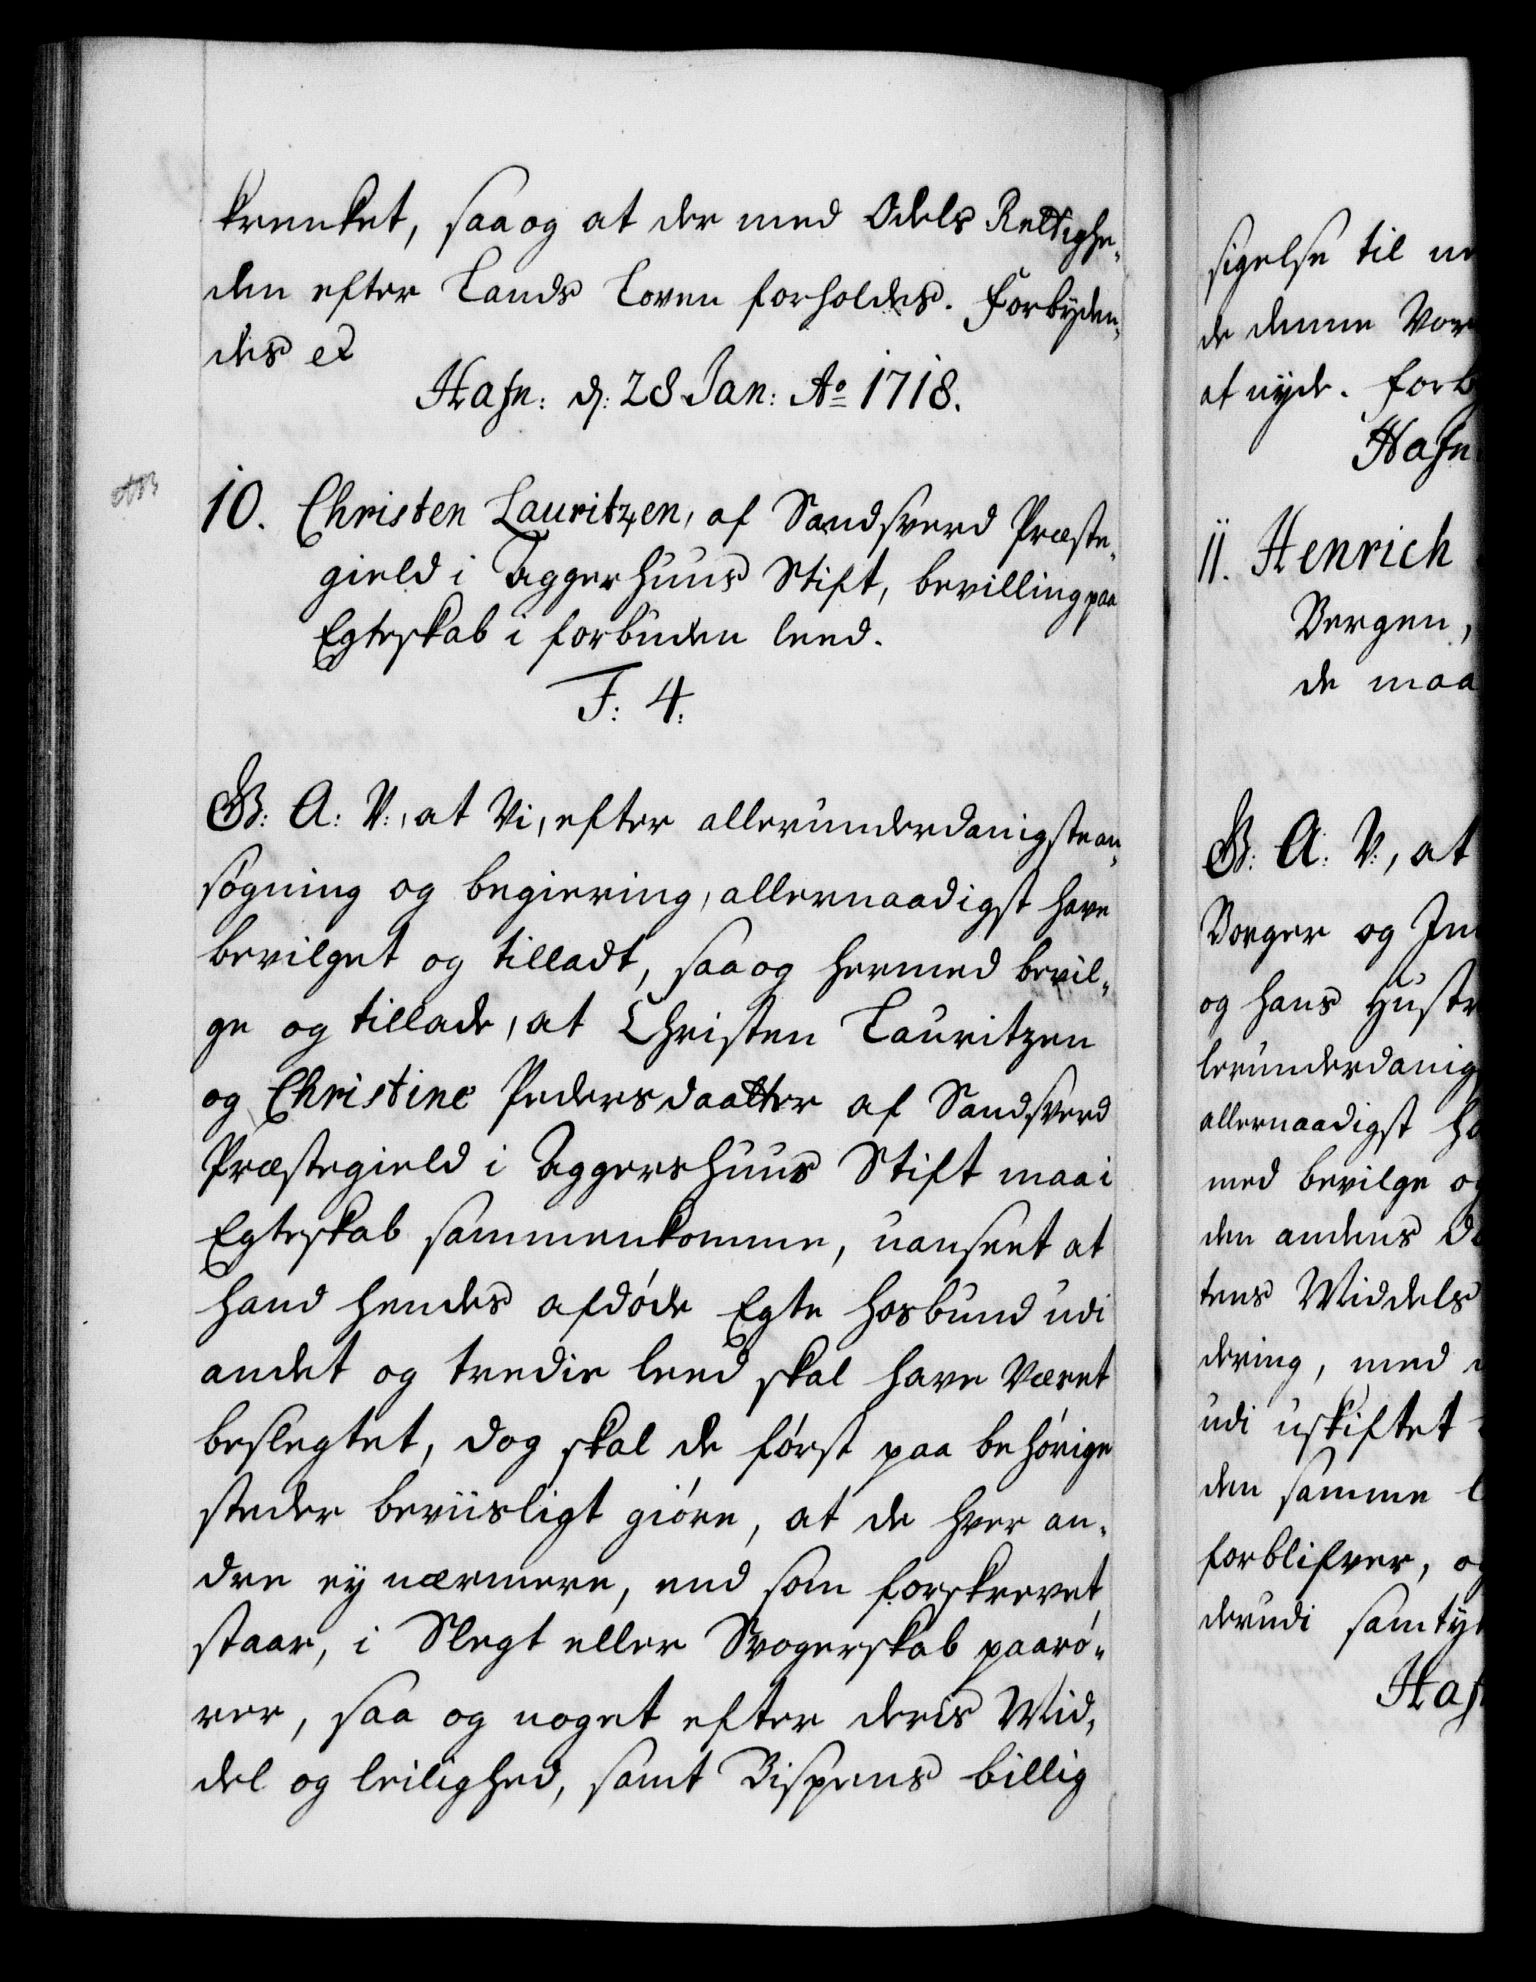 krenket, saa og at der med Odels Rettighe¬
den efter Lands Loven forholdes. Forbyden¬
des etc
Hafn: d: 28 Jan: Ao 1718.
10. Christen Lauritzen, af Sandsverd Præste¬
gield i Aggerhuus Stift, bevilling paa
Egteskab i forbuden leed.
F: 4:
G: A: V:, at Vi, efter allerunderdanigste an¬
søgning og begiering, allernaadigst have
bevilget og tilladt, saa og hermed bevil¬
ge og tillade, at Christen Lauritzen
og Christine Pedersdaatter af Sandsverd
Præstegield i Aggershuus Stift maa i
Egteskab sammenkomme, uanseet at
hand hendes afdøde Egte Hosbund udi
andet og tredie leed skal have Været
beslegtet, dog skal de først paa behørige
steder beviisligt giøre, at de hver an¬
dre ey nærmere, end som forskrevet
staar, i Slegt eller Svogerskab paarø¬
rer, saa og noget efter deris Mid¬
del og leilighed, samt Bispens billig
sigelse til
de denne Vor
at nyde. Forb
Hafn
11. Henrich
Bergen,
de maa
G: A: V:, at
Borger og In
og hans Hustr
lerunderdanig
allernaadigst ha
med bevilge og
den andens D
tens Middels
dering, med
udi uskiftet
den samme l
forblifver, og
derudi samty
Haf